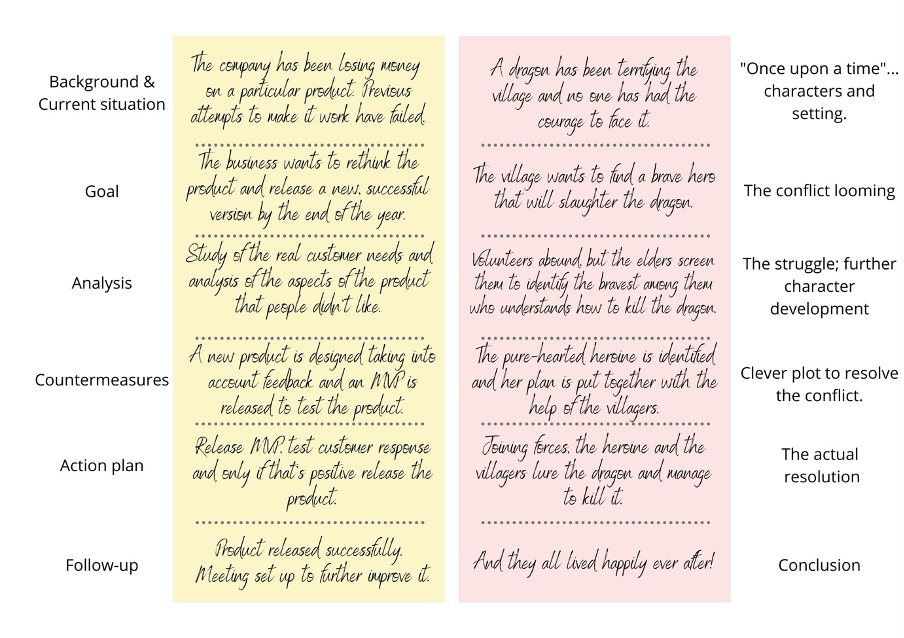 Background &
Current situation
The company has been losing money
on a particular product. Previous
attempts to make it work have failed.
A dragon has been terrifying the
village and no one has had the
courage to face it.
"Once upon a time"...
characters and
setting.
Goal
The business wants to rethink the
product and release a new, successful
version by the end of the year.
The village wants to find a brave hero
that will slaughter the dragon.
The conflict looming
Analysis
Study of the real customer needs and
analysis of the aspects of the product
that people didn't like.
Volunteers abound, but the elders screen
them to identify the bravest among them
who understands how to kill the dragon.
The struggle; further
character
development
Countermeasures
A new product is designed taking into
account feedback and an MVP is
released to test the product.
The pure-hearted heroine is identified
and her plan is put together with the
help of the villagers.
Clever plot to resolve
the conflict.
Action plan
Release MVP, test customer response
and only if that's positive release the
product.
Joining forces, the heroine and the
villagers lure the dragon and manage
to kill it.
The actual
resolution
Follow-up
Product released successfully.
Meeting set up to further improve it.
And they all lived happily ever after!
Conclusion